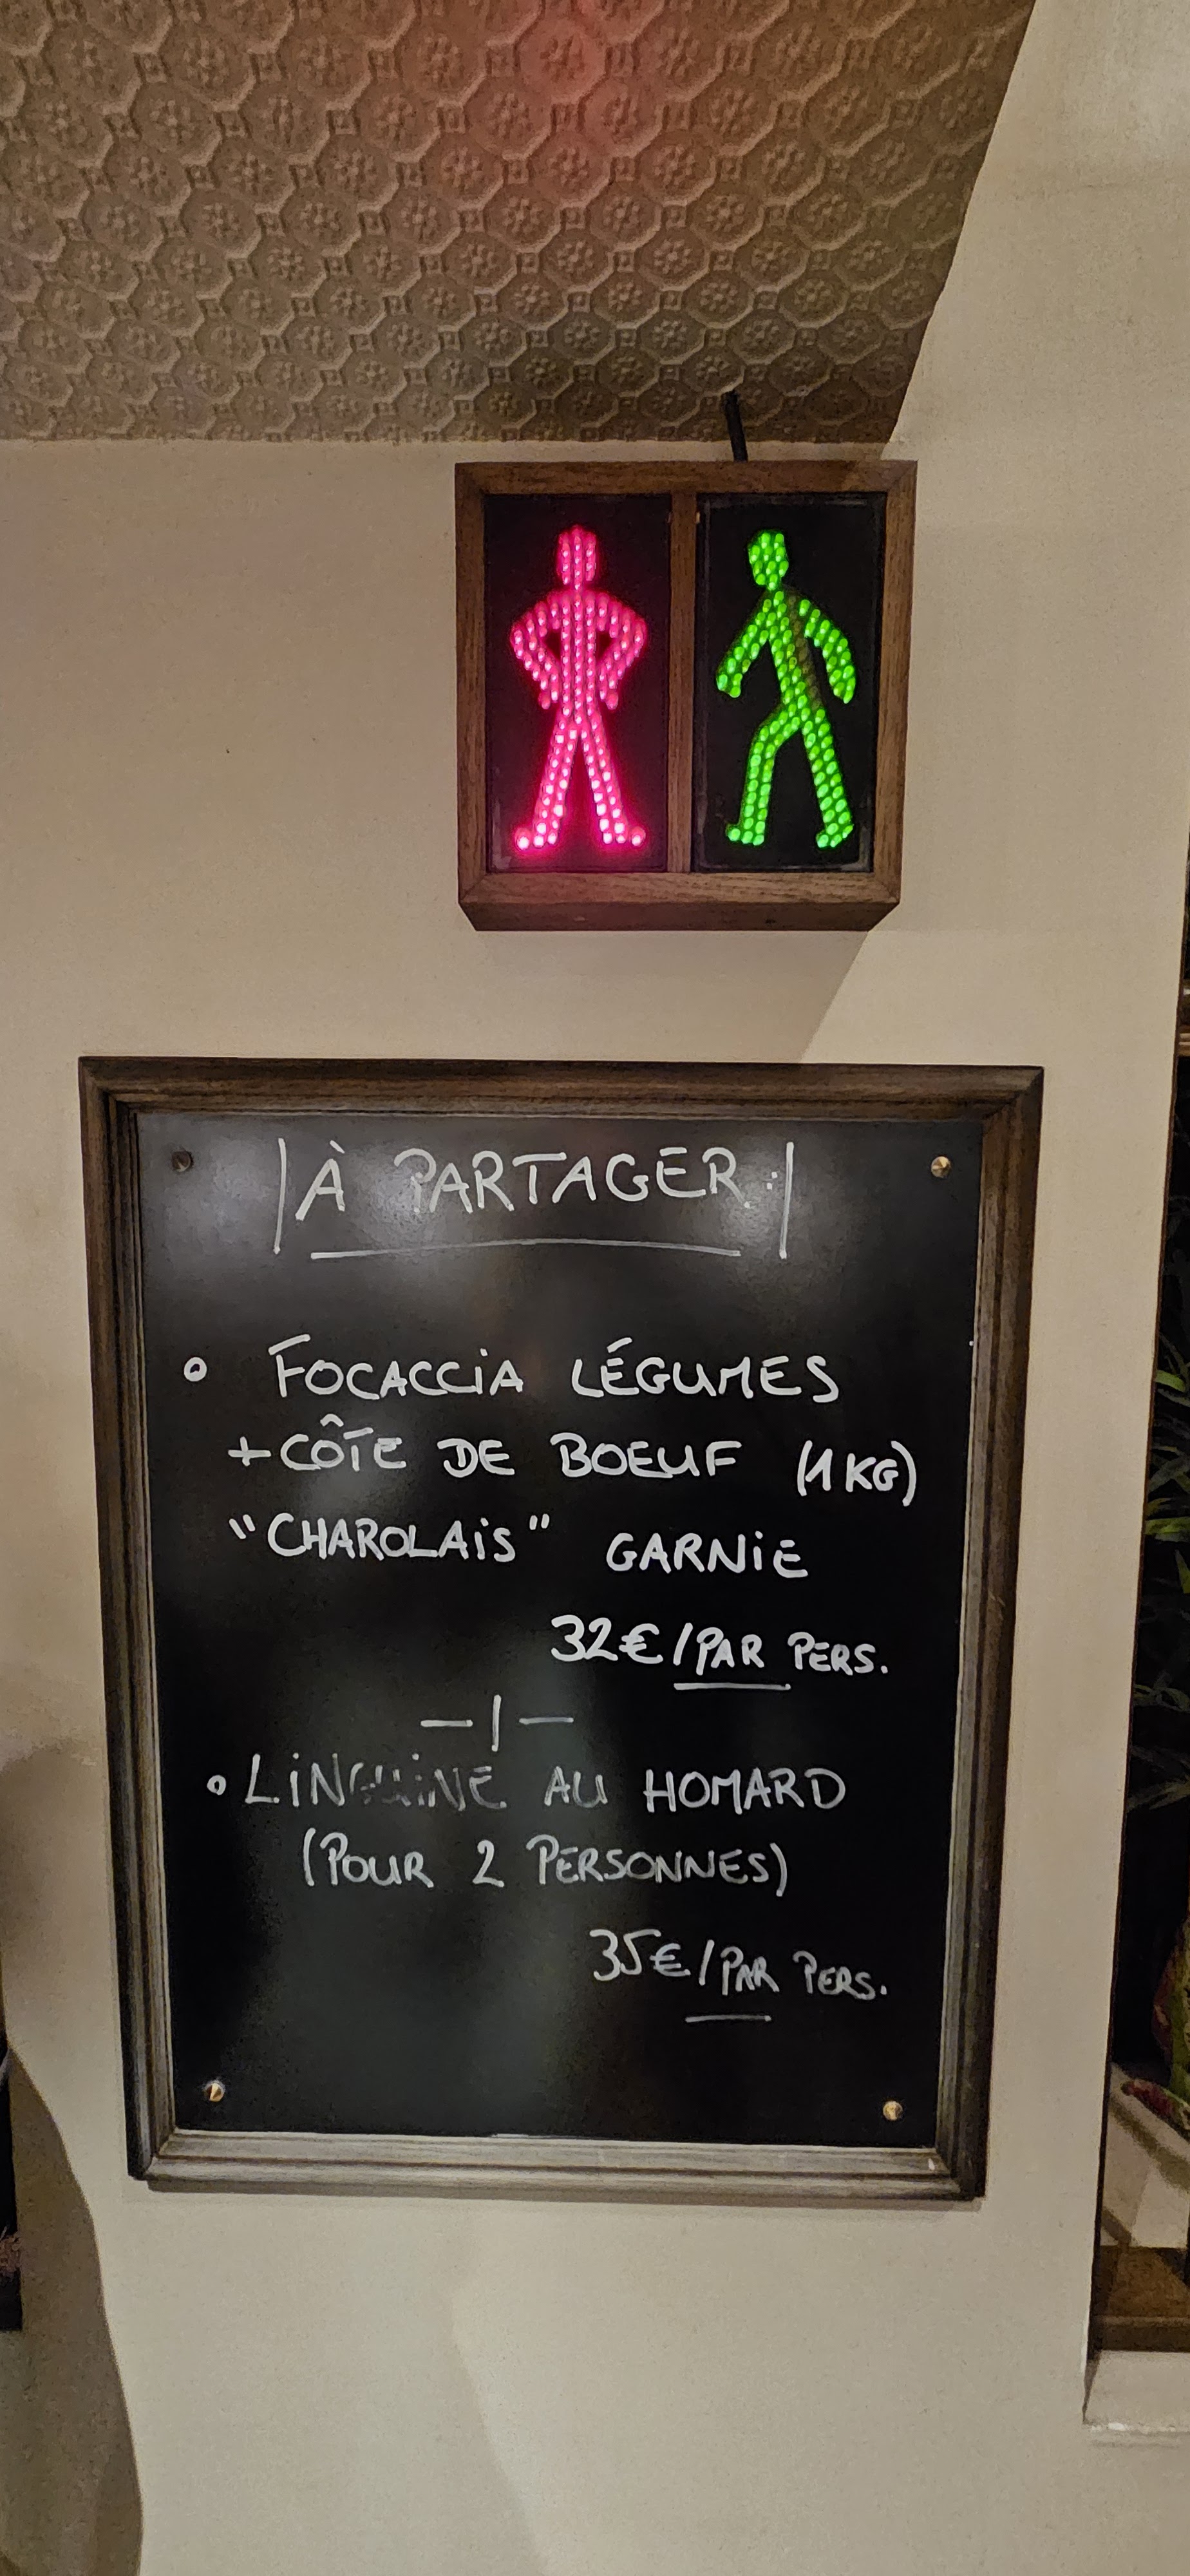 À PARTAGER :
° FOCACCIA LÉGUMES
+ CÔTE DE BOEUF (1KG)
"CHAROLAIS" GARNIE
32€/PAR PERS.
° LINGUINE AU HOMARD
(POUR 2 PERSONNES)
35€/PAR PERS.